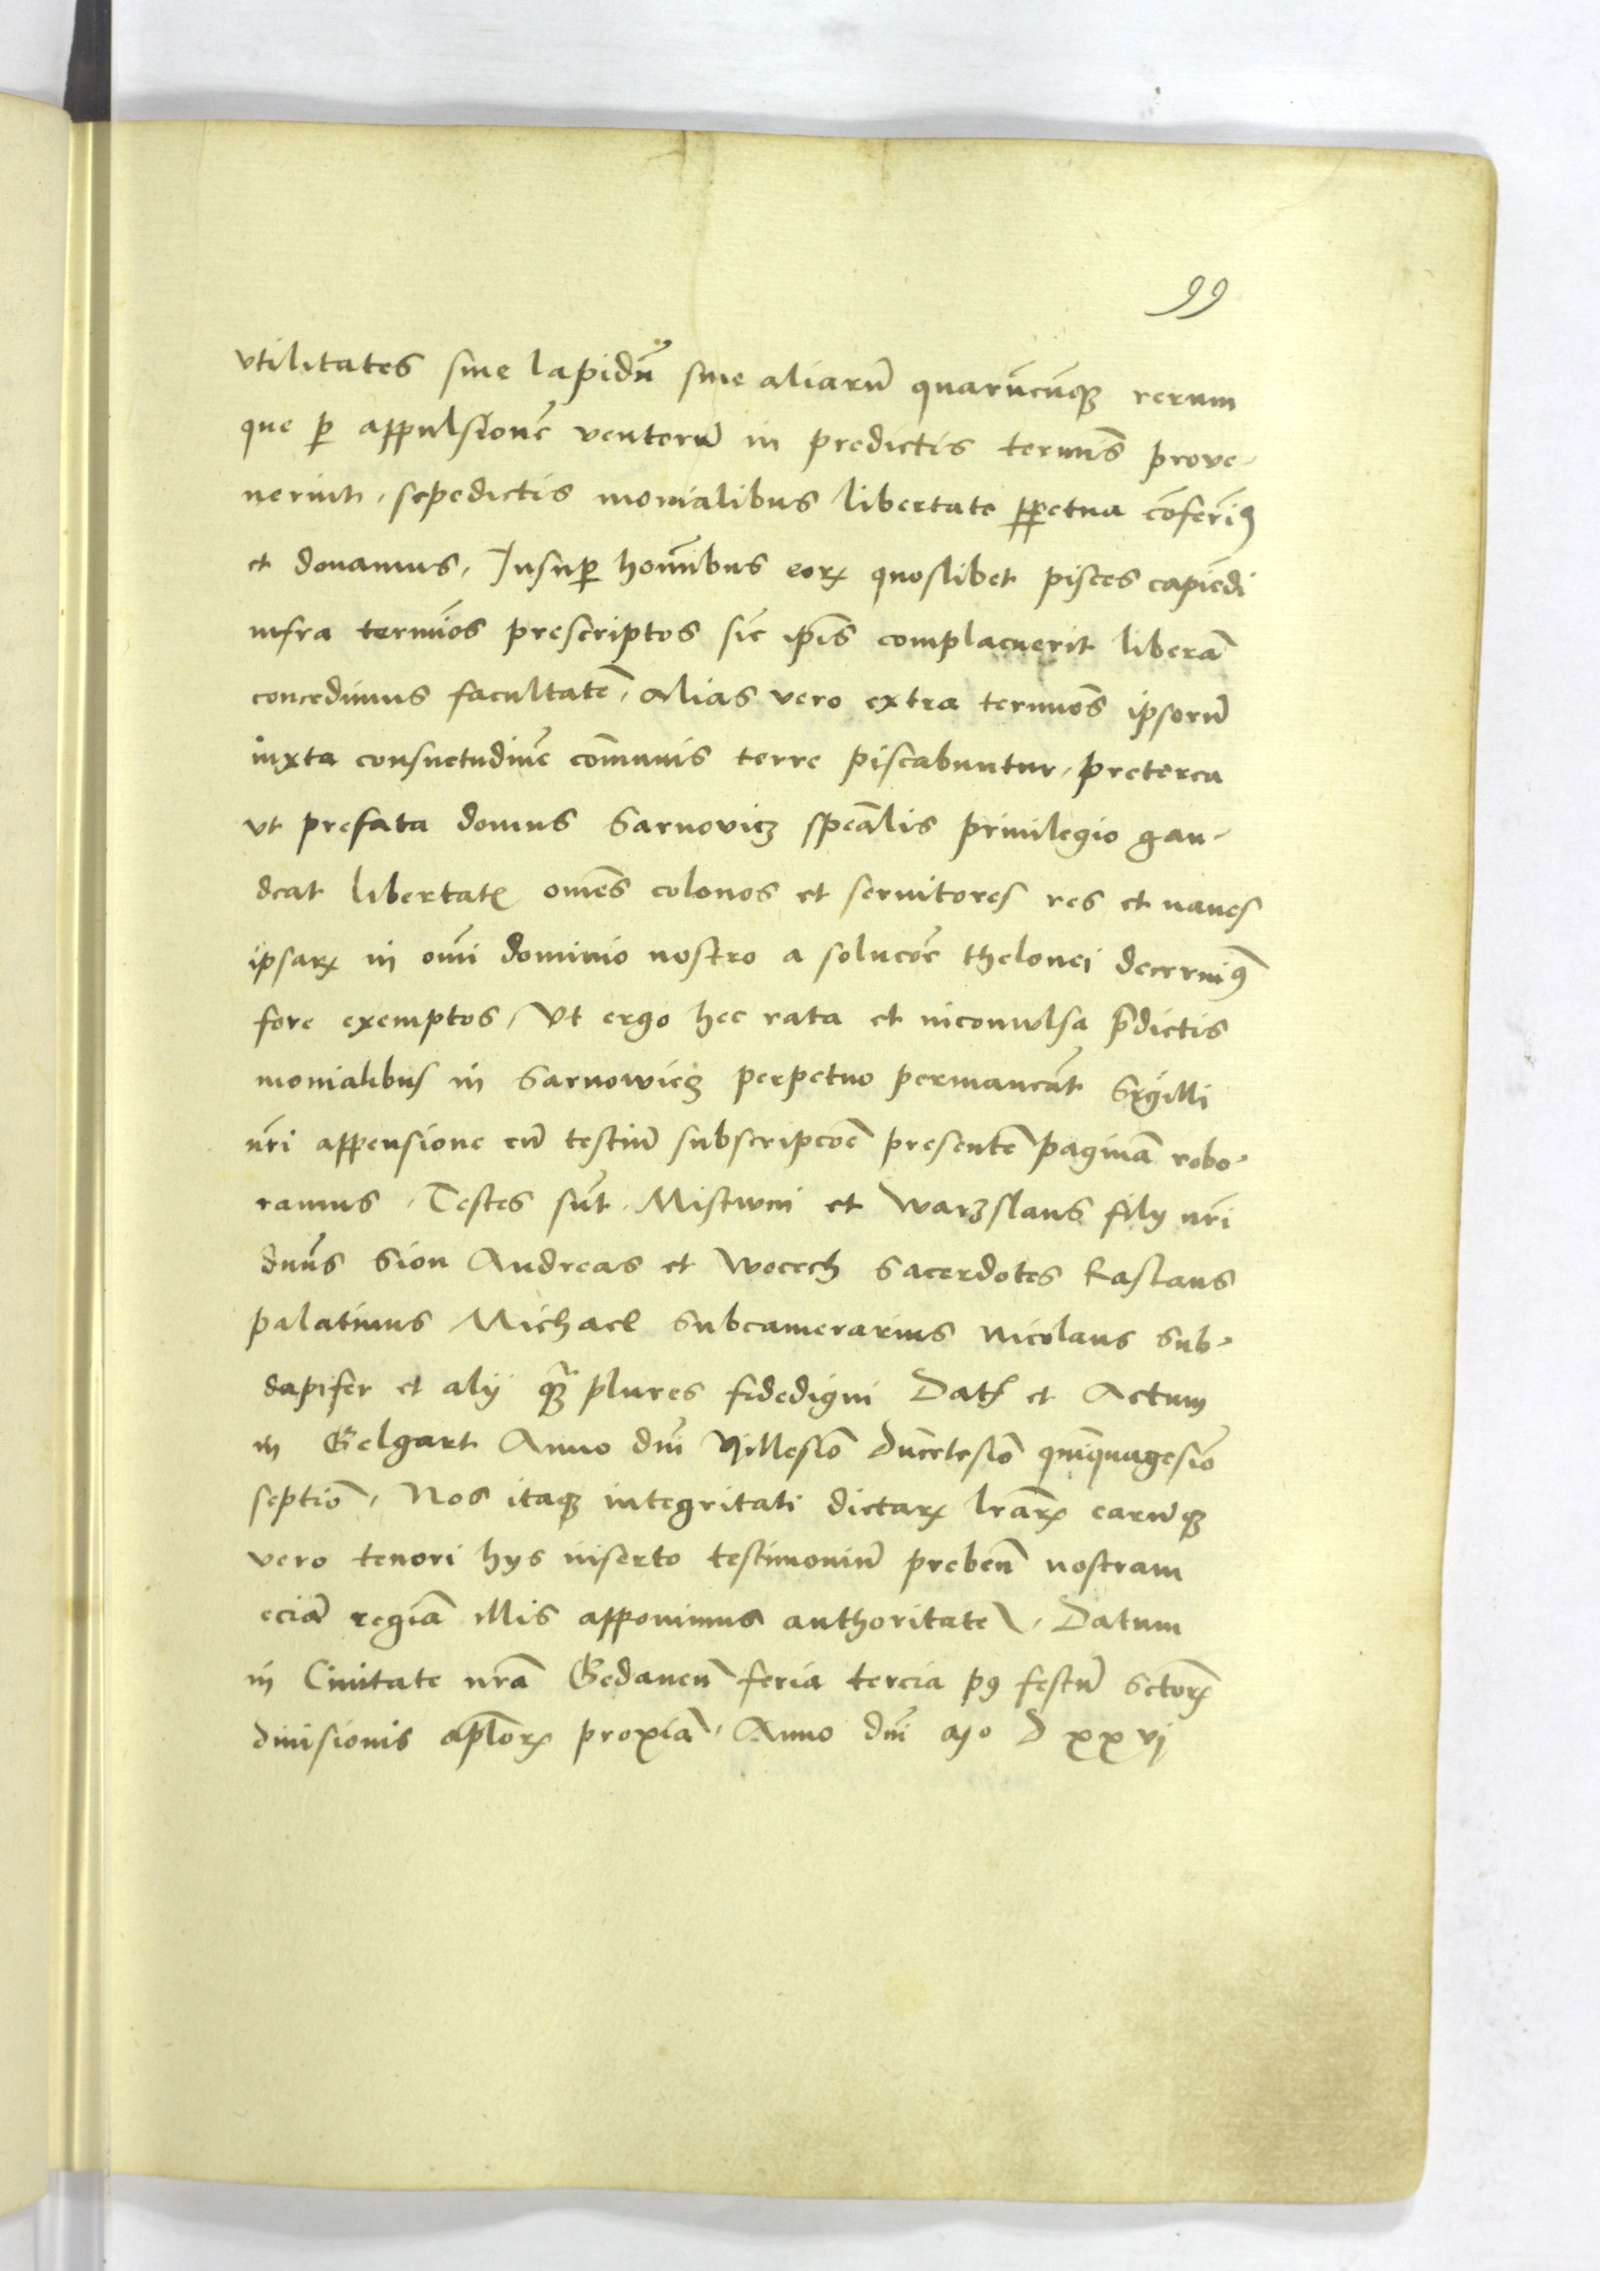 99
vtilitates siue lapidū siue aliarū quarūcūqꝫ rerum
que ꝑ appulsionē ventorū in predictis termīs prove-
nerint, sepedictis monialibus libertate ꝑpetua cōferimꝰ
et donamus, Insuꝑ homībus eorꝝ quoslibet pisces capiēdi
infra termīos prescriptos sic ip̄is complacuerit liberā
concedimus facultatē, Alias vero extra termīos ipsorū
iuxta consuetudinē cōmunis terre piscabuntur, preterea
vt prefata domus Sarnovicz speālis priuilegio gau-
deat libertatꝭ om̄es colonos et seruitores res et naues
ipsarꝝ in om̄i dominio nostro a solucōe thelonei decernimꝰ
fore exemptos, Vt ergo hec rata et inconwlsa p̄dictis
monialibus in Sarnowicz perpetuo permaneāt Sigilli
nr̄i appensione cū testiū subscripcōe presentē paginā robo-
ramus, Testes sūt, Mistwin et Warzslaus filij nr̄i
dn̄us Sion Andreas et Wocech Sacerdotes Kaslaus
palatinus Michael Subcamerarius Nicolaus Sub-
dapifer et alij qꝫ̄ plures fidedigni Datꝭ et Actum
in Belgart Anno dn̄i Millesiō Ducētesiō quīquagesiō
septiō, Nos itaqꝫ integritati dictarꝝ lr̄arꝝ earūqꝫ
vero tenori hijs inserto testimoniū prebeñ nostram
eciā regiā illis apponimus authoritatē, Datum
in Ciuitate nr̄a Gedaneñ feria tercia pꝰ festū Sctorꝝ
diuisionis ap̄lorꝝ proxīa, Anno dn̄i Mo D xxvj